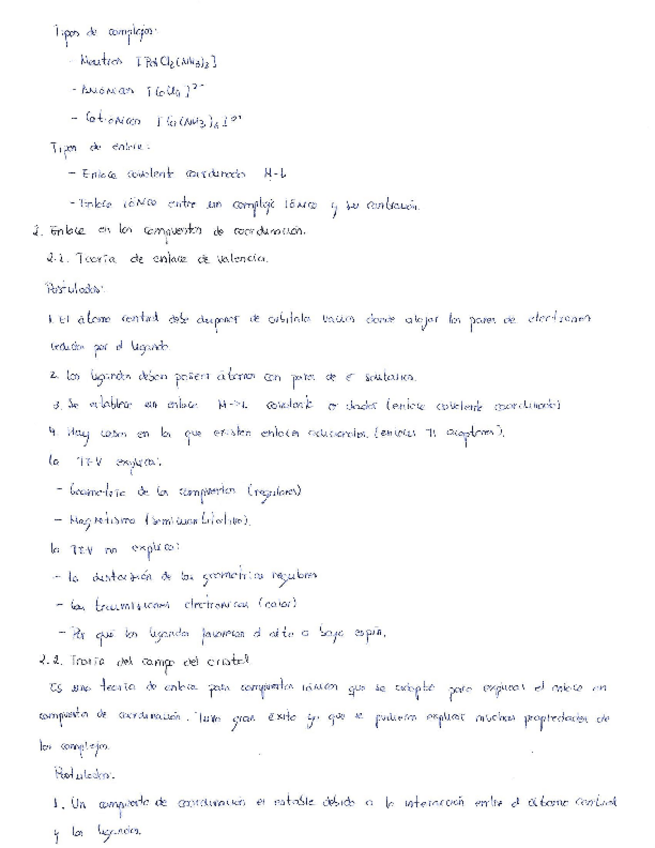 Tipos de complejos:
- Neutros [PdCl2(NH3)2]
- Aniónicos [CoCl4]2-
- Catiónicos [Co(NH3)6]3+
Tipos de enlace:
- Enlace covalente coordinado M-L
- Enlace iónico entre un complejo iónico y su contraión.
2. Enlace en los compuestos de coordinación.
2.1. Teoría de enlace de valencia.
Postulados:
1. El átomo central debe disponer de orbitales vacíos donde alojar los pares de electrones
cedidos por el ligando.
2. Los ligandos deben poseer átomos con pares de e- solitarios.
3. Se establece un enlace M->L covalente o dador (enlace covalente coordinado)
4. Hay casos en los que existen enlaces adicionales. (enlaces π aceptores).
La TEV explica:
- Geometría de los compuestos (regulares)
- Magnetismo (semicuantitativo).
La TEV no explica:
- La distorsión de las geometrías regulares
- Las transmisiones electrónicas (color)
- Por qué los ligandos favorecen el alto o bajo espín.
2.2. Teoría del campo del cristal
Es una teoría de enlace para compuestos iónicos que se adaptó para explicar el enlace en
compuestos de coordinación. Tuvo gran éxito ya que se pudieron explicar muchas propiedades de
los complejos.
Postulados:
1. Un compuesto de coordinación es estable debido a la interacción entre el átomo central
y los ligandos.